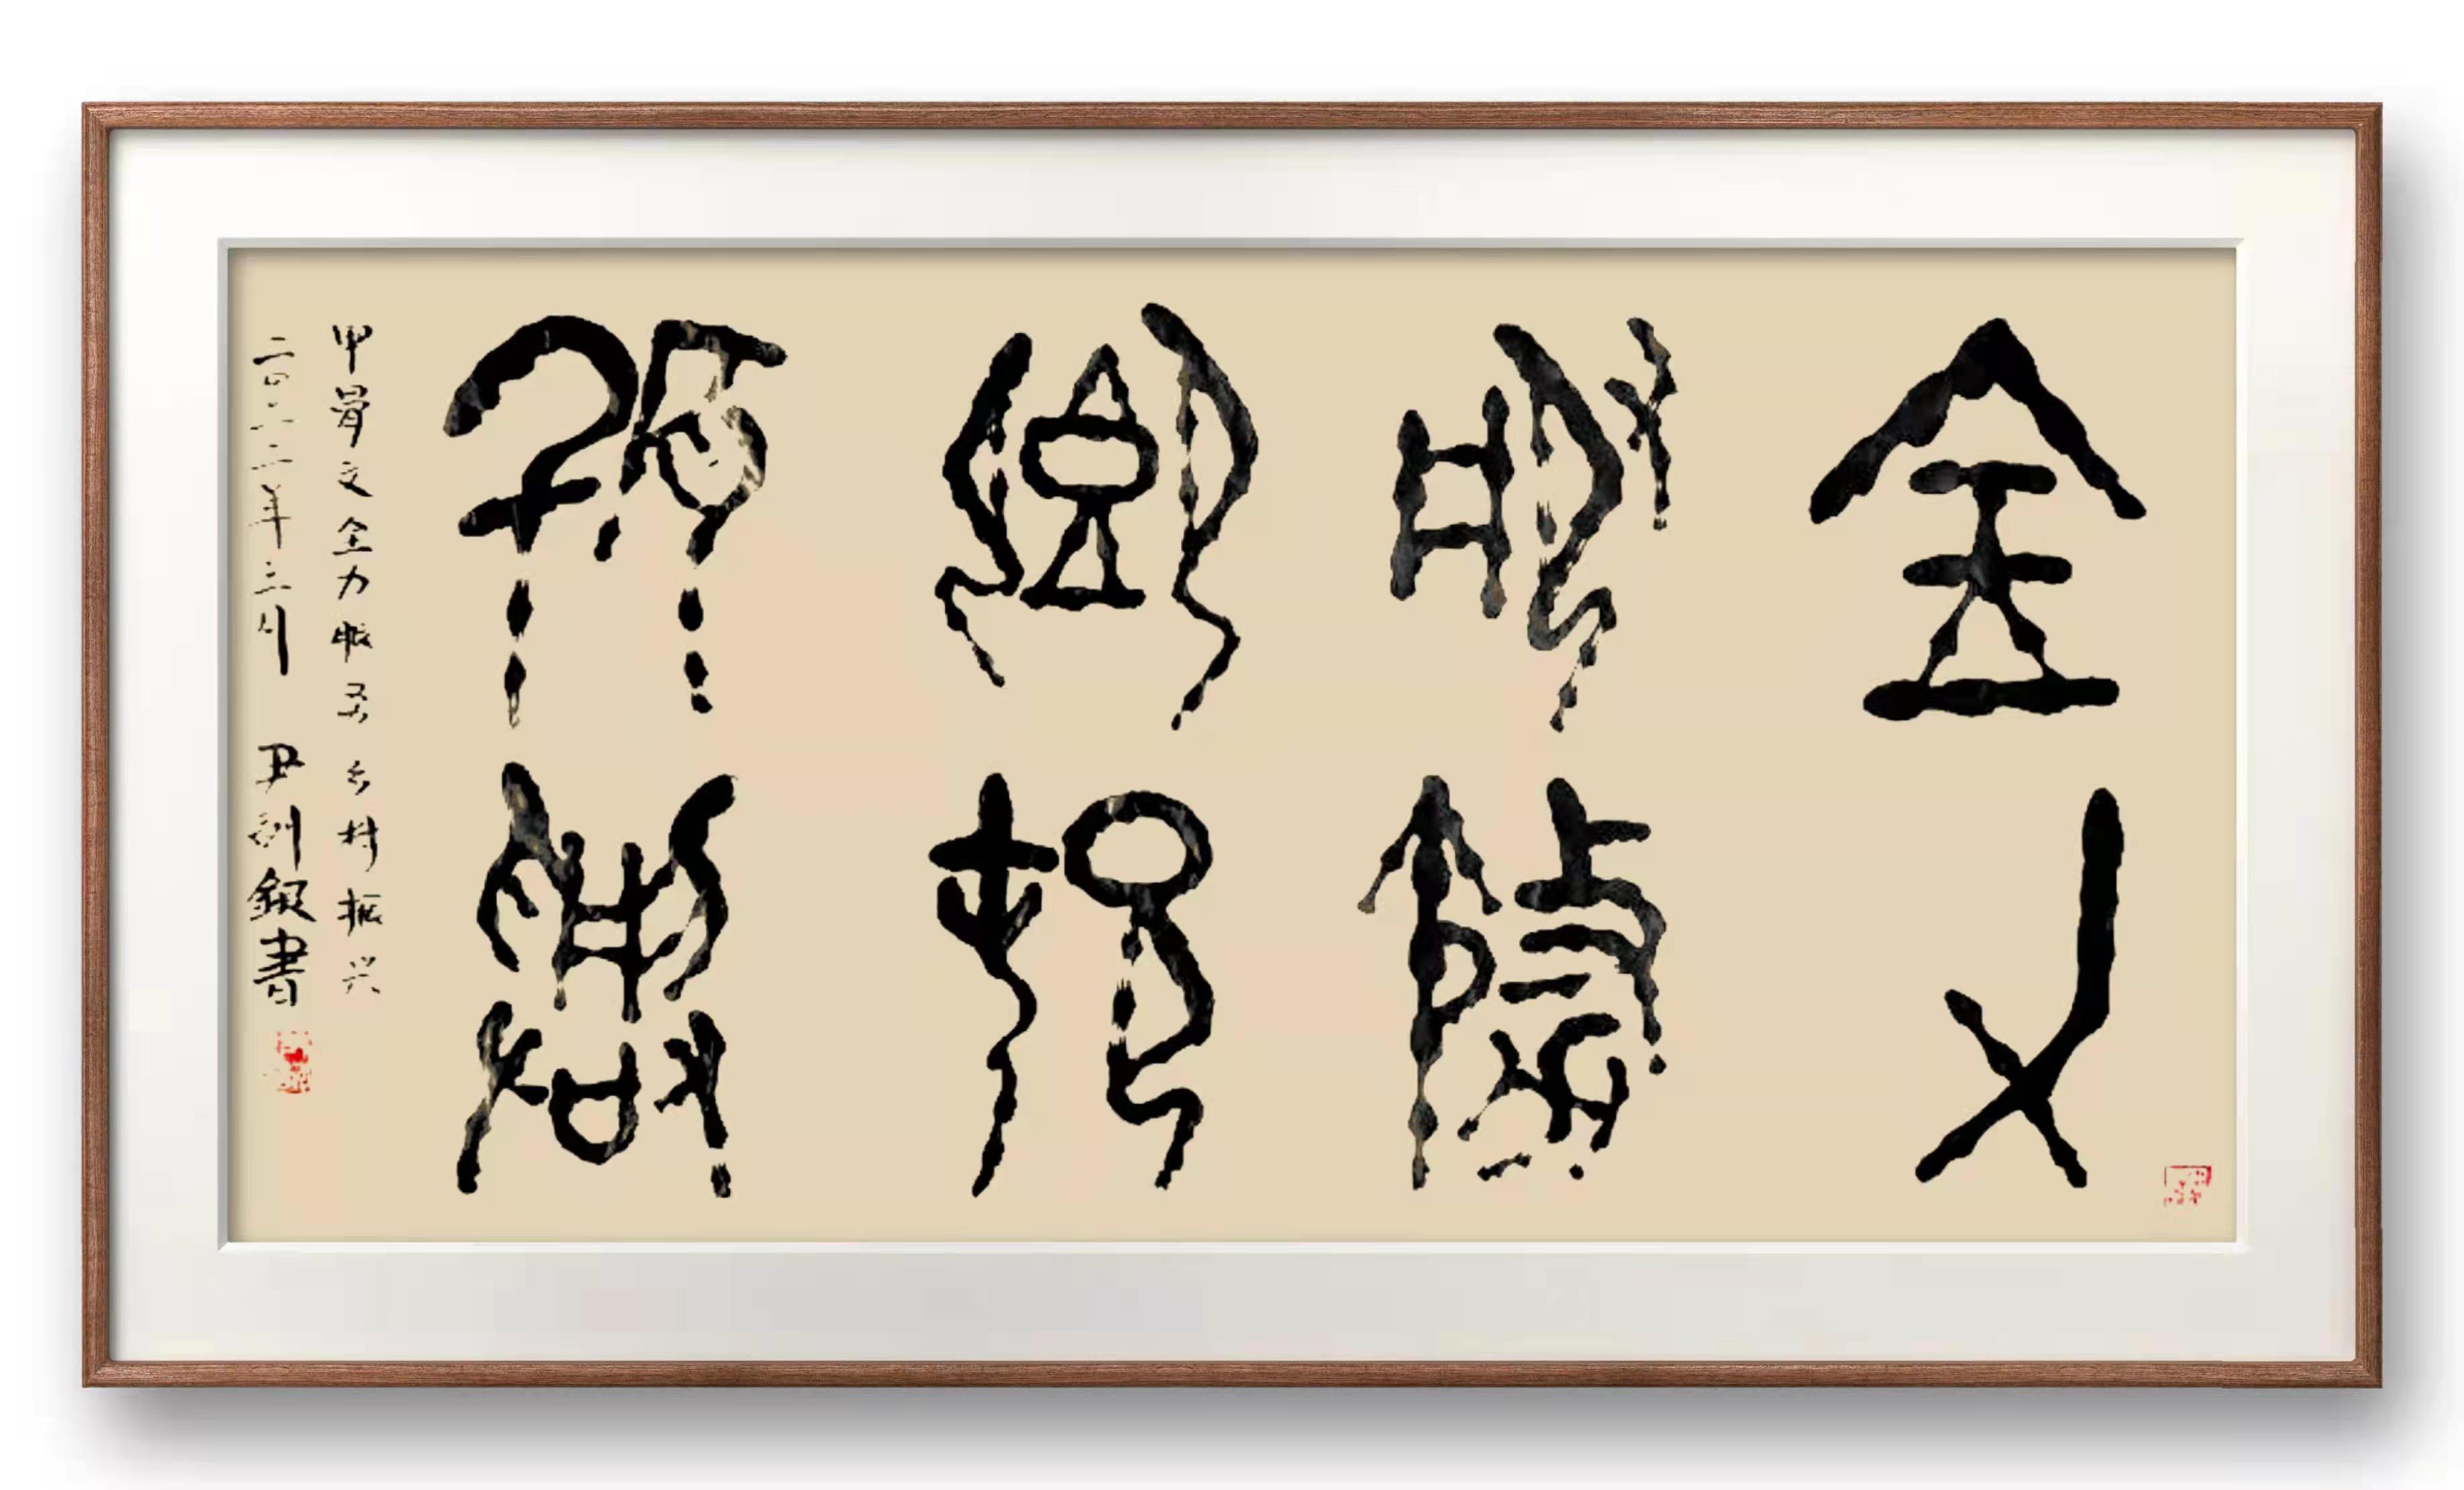 全力
服務
鄉村
振興
甲骨文全力服务乡村振兴
二〇二二年三月 尹銀書